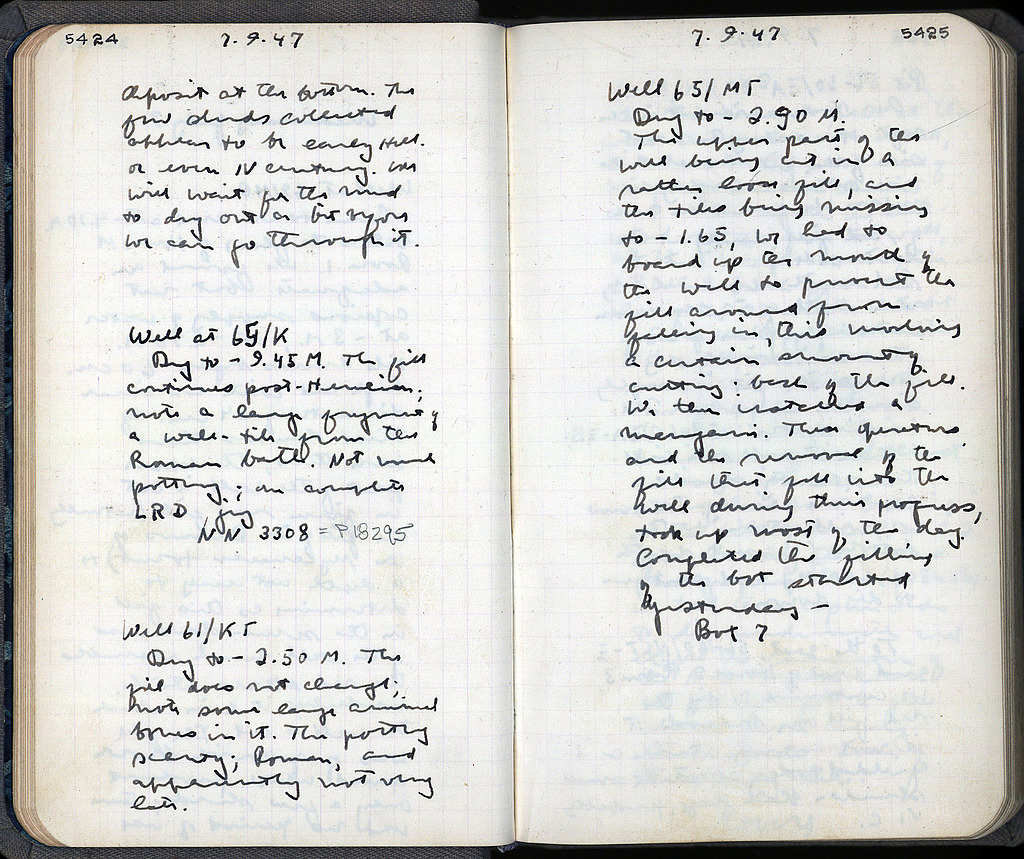 5424
7.9.47
deposit at the bottom. The
few sherds collected
appear to be early Hell.
or even IV century. We
will wait for the mud
to dry out a bit before
we can go through it.
Well at 65/K
Dug to - 9.45 M. The fill
continues post-Herulian;
note a large fragment of
a wall-tile from the
Roman bath. Not much
pottery; one complete
LRD jug
NN 3308 = P 18295
Well 61/KT
Dug to - 2.50 M. The
fill does not change;
note some large animal
bones in it. The pottery
scanty; Roman, and
apparently not very
late.
7.9.47
5425
Well 65/MT
Dug to - 2.90 M.
The upper part of the
well being cut in a
rather loose fill, and
the tiles being missing
to - 1.65, we had to
board up the mouth of
the well to prevent the
fill around from
falling in, this involving
a certain amount of
cutting back of the fill.
We then installed a
mangani. These operations
and the removal of the
fill that fell into the
well during their progress,
took up most of the day.
Completed the filling
of the box started
yesterday -
Box 7